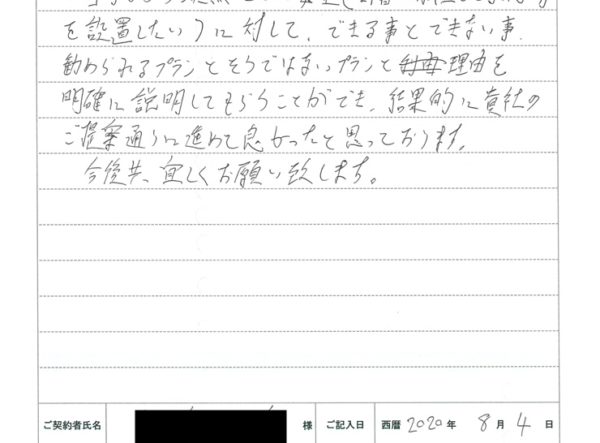 を設置したい)に対して、できる事とできない事、
勧められるプランとそうではないプランと理由を
明確に説明してもらうことができ、結果的に貴社の
ご提案通りに進めて良かったと思っております。
今後共、宜しくお願い致します。
ご契約者氏名 様 ご記入日 西暦 2020 年 8 月 4 日